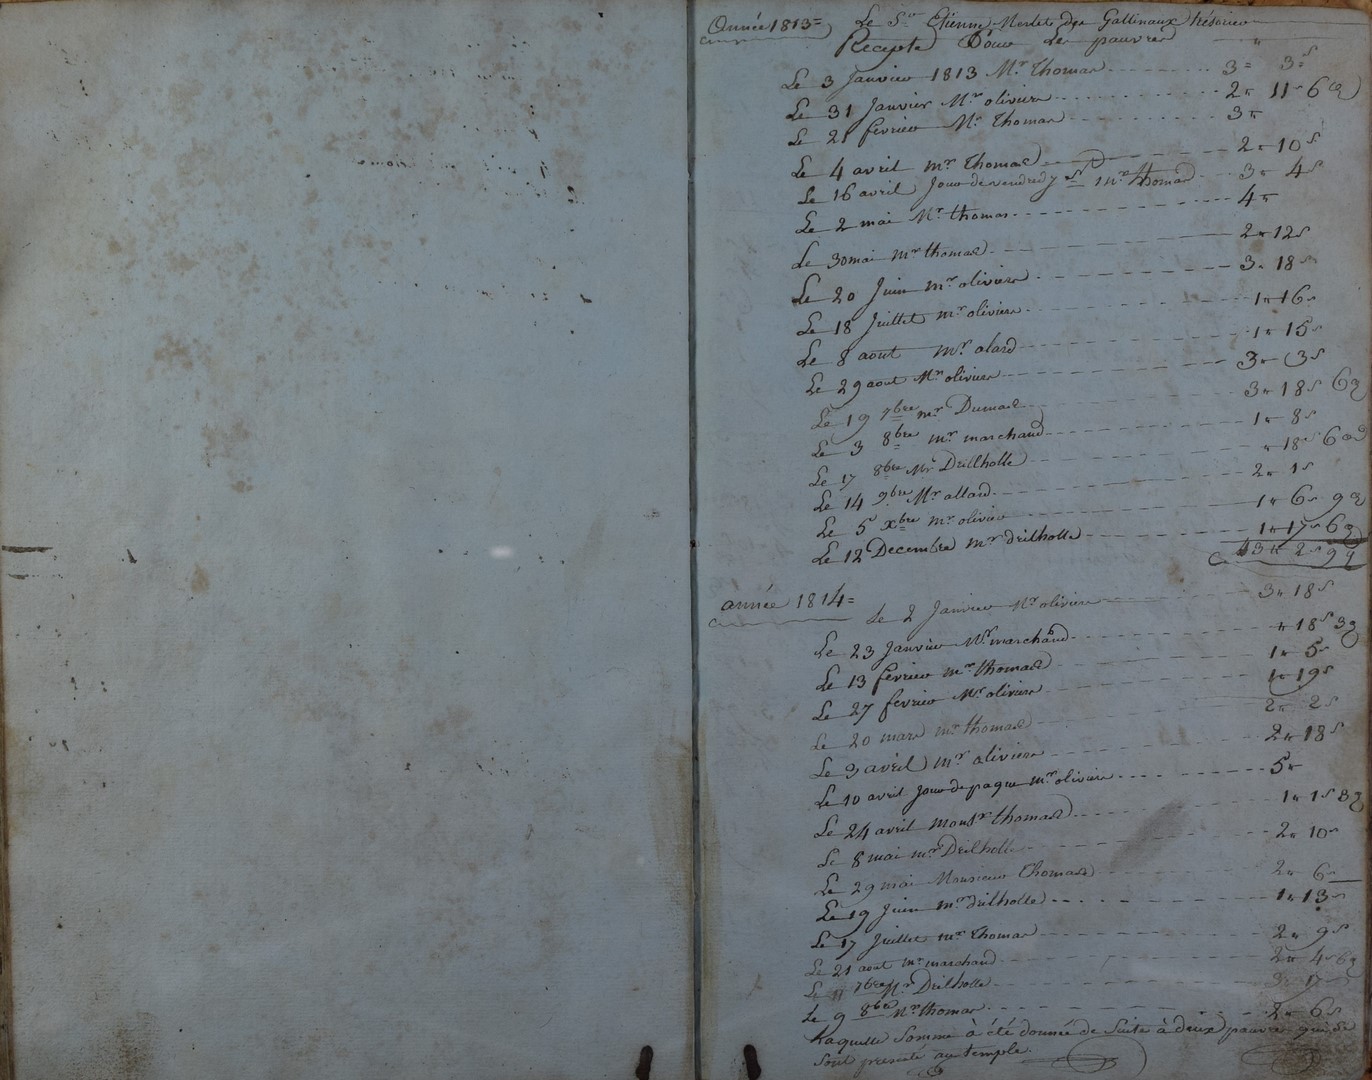 Année 1813= Le Sr Etienne Merlet des Gallinaux trésorier
Recepte Pour Les pauvres
Le 3 Janvier 1813 Mr Thomas 3= 3s
Le 31 Janvier Mr olivier 2tt 11s 6
Le 21 fevrier Mr Thomas 3tt
Le 4 avril mr Thomas 2tt 10s
Le 16 avril Jour de vendredy St mr thomas 3tt 4s
Le 2 mai Mr thomas 4tt
Le 30 mai mr thomas 2tt 12s
Le 20 Juin mr olivier 3tt 18s
Le 18 Juillet mr olivier 1tt 16s
Le 8 aout mr alard 1tt 15s
Le 29 aout Mr olivier 3tt 3s
Le 19 7bre mr Dumas 3tt 18s 6d
Le 3 8bre mr marchand 1tt 8s
Le 17 8bre Mr Drilholle tt 18s 6d
Le 14 9bre Mr allard 2tt 1s
Le 5 xbre mr olivier 1tt 6s 9d
Le 12 Decembre mr drilholle 1tt 17s 6d
43tt 2s 9d
année 1814= Le 2 Janvier Mr olivier 3tt 18s
Le 23 Janvier Mr marchand tt 18s 3d
Le 13 fevrier mr thomas 1tt 5s
Le 27 fevrier Mr olivier 1tt 19s
Le 20 mars mr thomas 2tt 2s
Le 3 avril mr olivier 2tt 18s
Le 10 avril Jour de paque mr olivier 5tt
Le 24 avril monsr thomas 1tt 1s 3d
Le 8 mai mr Drilholle 2tt 10s
Le 29 mai Monsieur Thomas 2tt 6s
Le 19 Juin mr drilholle 1tt 13s
Le 17 Juillet mr Thomas 2tt 9s
Le 21 aout mr marchand 2tt 4s 6d
Le 11 7bre Mr Drilholle 3tt 17s
Le 9 8bre Mr thomas 2tt 6s
Laquelle Somme à été donnée de Suite à deux pauvres qui se
sont presenté au temple.